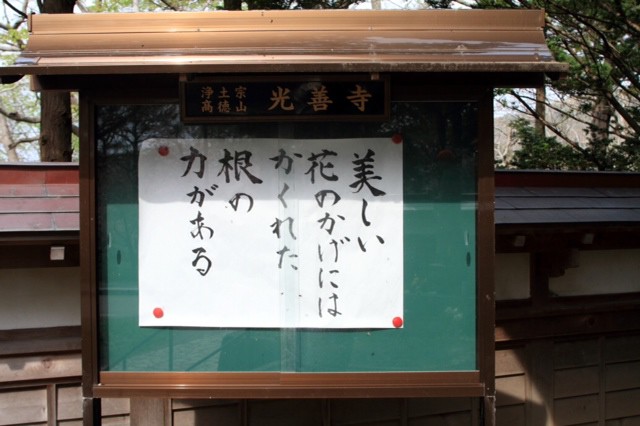 浄土宗
高徳山
光善寺
美しい
花のかげには
かくれた
根の
力がある